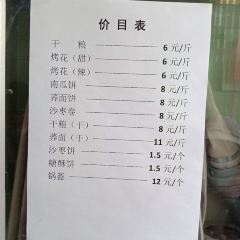 价目表
干 粮 6 元/斤
烤花（甜） 6 元/斤
烤花（辣） 6 元/斤
南瓜饼 8 元/斤
荞面饼 8 元/斤
沙枣卷 8 元/斤
干粮（干） 8 元/斤
荞面（干） 11 元/斤
沙枣饼 1.5 元/个
糖酥饼 1.5 元/个
锅盔 12 元/个